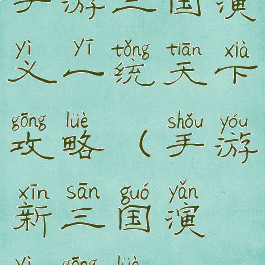 手游三国演
yì yī tǒng tiān xià
义一统天下
gōng lüè shǒu yóu
攻略（手游
xīn sān guó yǎn
新三国演
yì gōng lüè